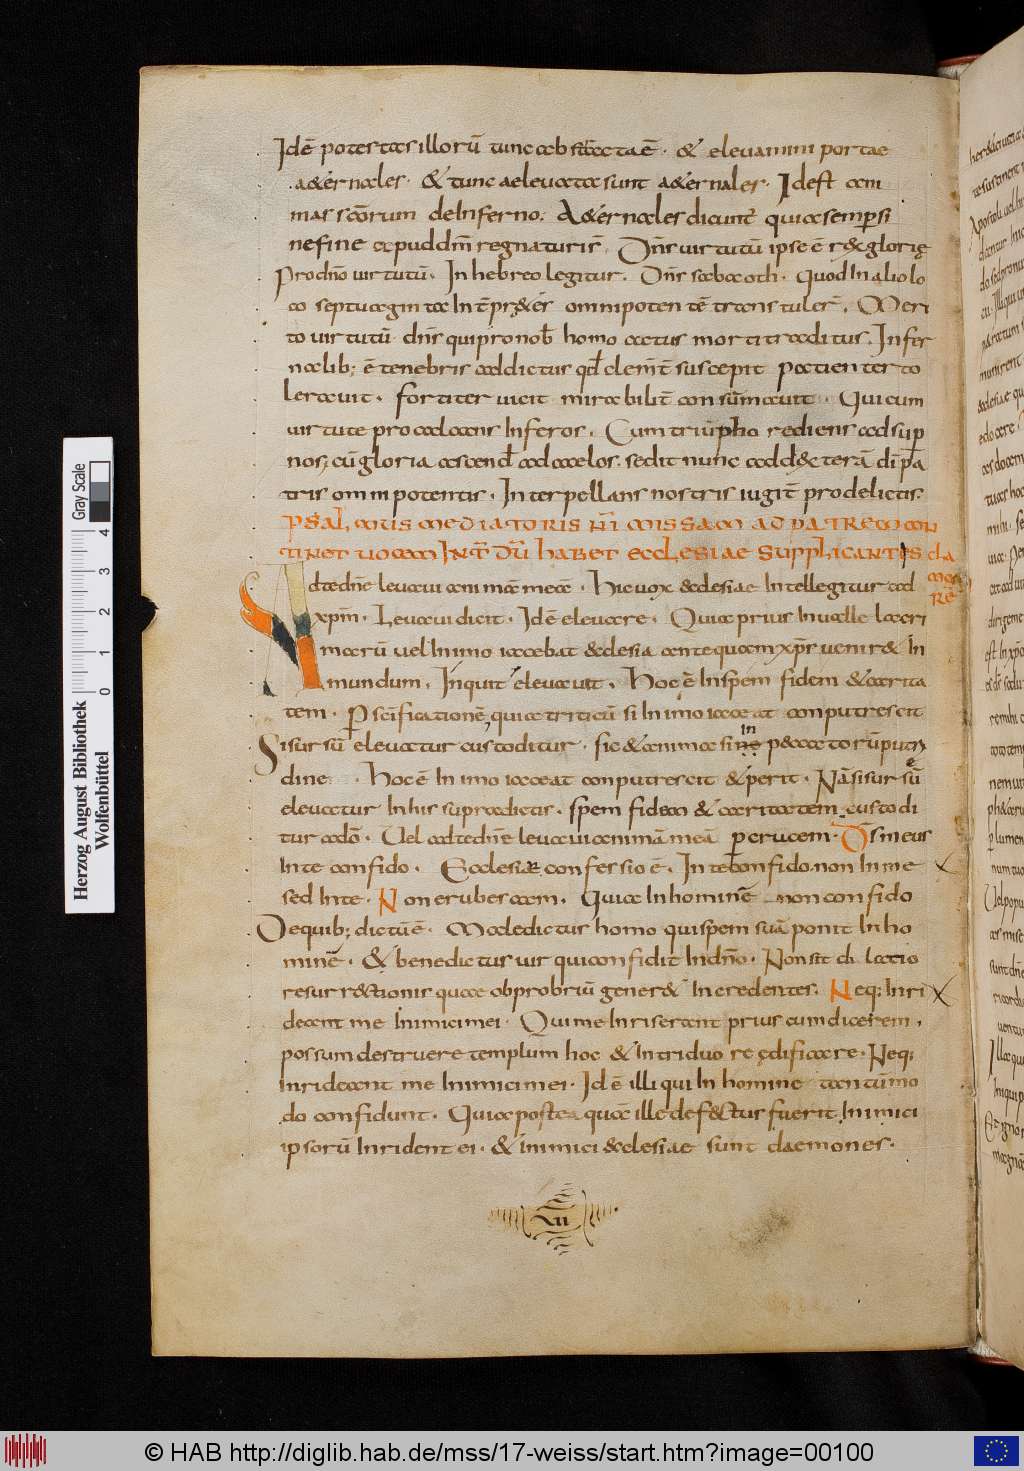 Idē potestas illorū tunc abstracta ē. & elevamini portae
a&ernales. & tunc aelevatae sunt a&ernales. Id est ani
mas scōrum de Inferno. A&ernales dicunt quia semper si
ne fine apud dm̄ regnaturis. Dn̄s virtutū ipse ē r& glorię
Pro dn̄o virtutū. In hebreo legitur. Dn̄s sabaoth. Quod In alio lo
co septuaginta Int̄pr&es omnipotentē transtuler̄. Meri
to virtutū dn̄s qui pro nob̄ homo factus morti traditus. Infer
nalib; ē tenebris addictus qd̄ clem̄t̄ suscepit patienter to
leravit. fortiter vicit mirabilit̄ consūmavit. Qui cum
virtute pro calcans Inferos. Cum triūpho rediens ad sup̄
nos; cū gloria ascend̄ ad caelos. sedit nunc ad d&terā dī pa
tris omnipotentis. Interpellans nostris iugit̄ pro delictis.
PSAL̄ mus mediatoris nr̄i missam ad patrem con
tinet vocem Int̄ dū habet ecclesiae supplicantis cla
morē
Ad te dn̄e levavi animā meā. Hic vox &clesiae Intellegitur ad
xpm̄. Levavi dicit. Idē elevare. Quia prius In valle lacri
marū vel In imo iacebat &clesia antequam xpr̄ venir& In
mundum. Inquit elevavit. Hoc ē In spem fidem & carita
tem. P scīficationē, quia triticū si In imo iaceat conputrescit
Si sursū elevatur custoditur. sic & anima si in p&cators putre
dine. Hoc ē In imo iaceat conputrescit & perit. Nā si sursū
elevatur In his supradictis. spem fidem & caritatem custodi
tur a do̅. Vel ad te dn̄e levavi animā meā per crucem. Ds̄ meus
In te confido. Ecclesiae confessio ē. In te confido non In me
sed In te. Non erubescam. Quia In hominē non confido
De quib; dictū ē. Maledictus homo qui spem suā ponit In ho
minē. & benedictus vir qui confidit In dn̄o. Non sit di latio
resurr&tionis quae obprobriū gener& In credentes. Neq; Inri
deant me Inimici mei. Qui me Inriserant prius cum dicerem.
possum destruere templum hoc & In triduo reędificare. Neq;
Inrideant me Inimici mei. Id ē illi qui In homine tantūmo
do confidunt. Quia postea quā ille def&tus fuerit Inimici
ipsorū Inrident ei. & Inimici &clesiae sunt daemones.
VII
Herzog August Bibliothek
Wolfenbüttel
Gray Scale
0 1 2 3 4
© HAB http://diglib.hab.de/mss/17-weiss/start.htm?image=00100